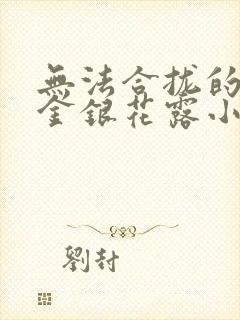 無法合拢的
金銀花露小
劉封